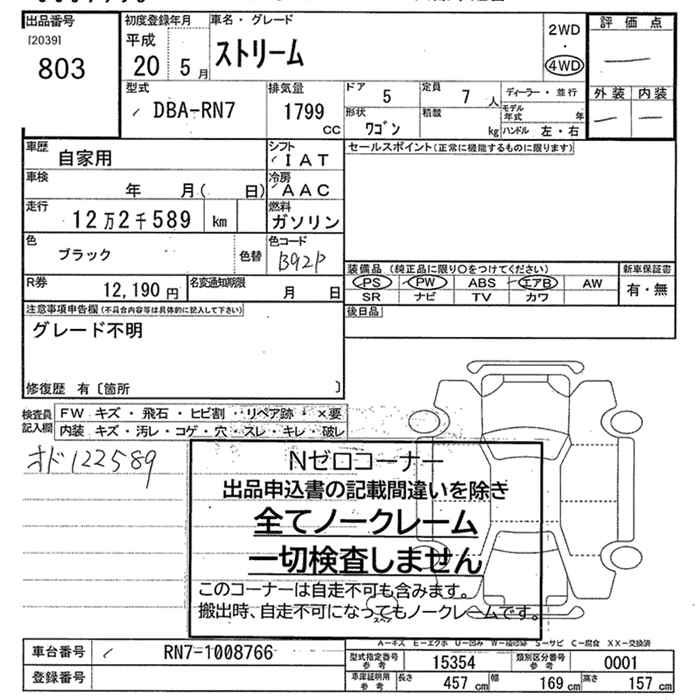 出品番号
[2039]
803
初度登録年月
平成
20 5月
車名・グレード
ストリーム
2WD
・
4WD
評価点
外装 内装
型式
DBA-RN7
排気量
1799
CC
ドア 5
定員 7 人
形状 ワゴン
積載 kg
ディーラー・並行
モデル年式 年
ハンドル 左・右
車歴
自家用
シフト
IAT
セールスポイント(正常に機能するものに限ります)
車検
年 月( 日)
冷房
AAC
走行
12万2千589 km
燃料
ガソリン
色
ブラック
色替
色コード
B92P
装備品 (純正品に限り○をつけてください)
新車保証書
PS PW ABS エアB AW
有・無
SR ナビ TV カワ
R券
12,190 円
名変通知期限
月 日
後日品
注意事項申告欄(不具合内容等は具体的に記入して下さい)
グレード不明
修復歴 有〔箇所 〕
検査員記入欄
FW キズ・飛石・ヒビ割・リペア跡・×要
内装 キズ・汚レ・コゲ・穴・スレ・キレ・破レ
オド122589
Nゼロコーナー
出品申込書の記載間違いを除き
全てノークレーム
一切検査しません
このコーナーは自走不可も含みます。
搬出時、自走不可になってもノークレームです。
A-キズ E-エクボ U-凹み W-補修跡 S-サビ C-腐食 XX-交換済
車台番号 RN7-1008766
型式指定番号 参考 15354
類別区分番号 参考 0001
登録番号
車庫証明用 参考 長さ 457 cm 幅 169 cm 高さ 157 cm